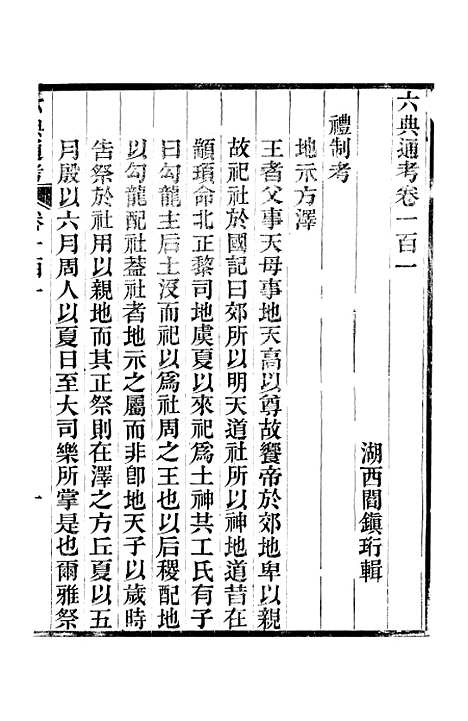 六典通考卷一百一
湖西閻鎮珩輯
禮制考
地示方澤
王者父事天母事地天高以尊故饗帝於郊地卑以親
故祀社於國記曰郊所以明天道社所以神地道昔在
顓頊命北正黎司地虞夏以來祀爲土神其工氏有子
曰勾龍主后土沒而祀以爲社周之王也以后稷配地
以勾龍配社蓋社者地示之屬而非卽地天子以歲時
告祭於社用以親地而其正祭則在澤之方丘夏以五
月殷以六月周人以夏日至大司樂所掌是也爾雅祭
六典通考
卷一百一
一